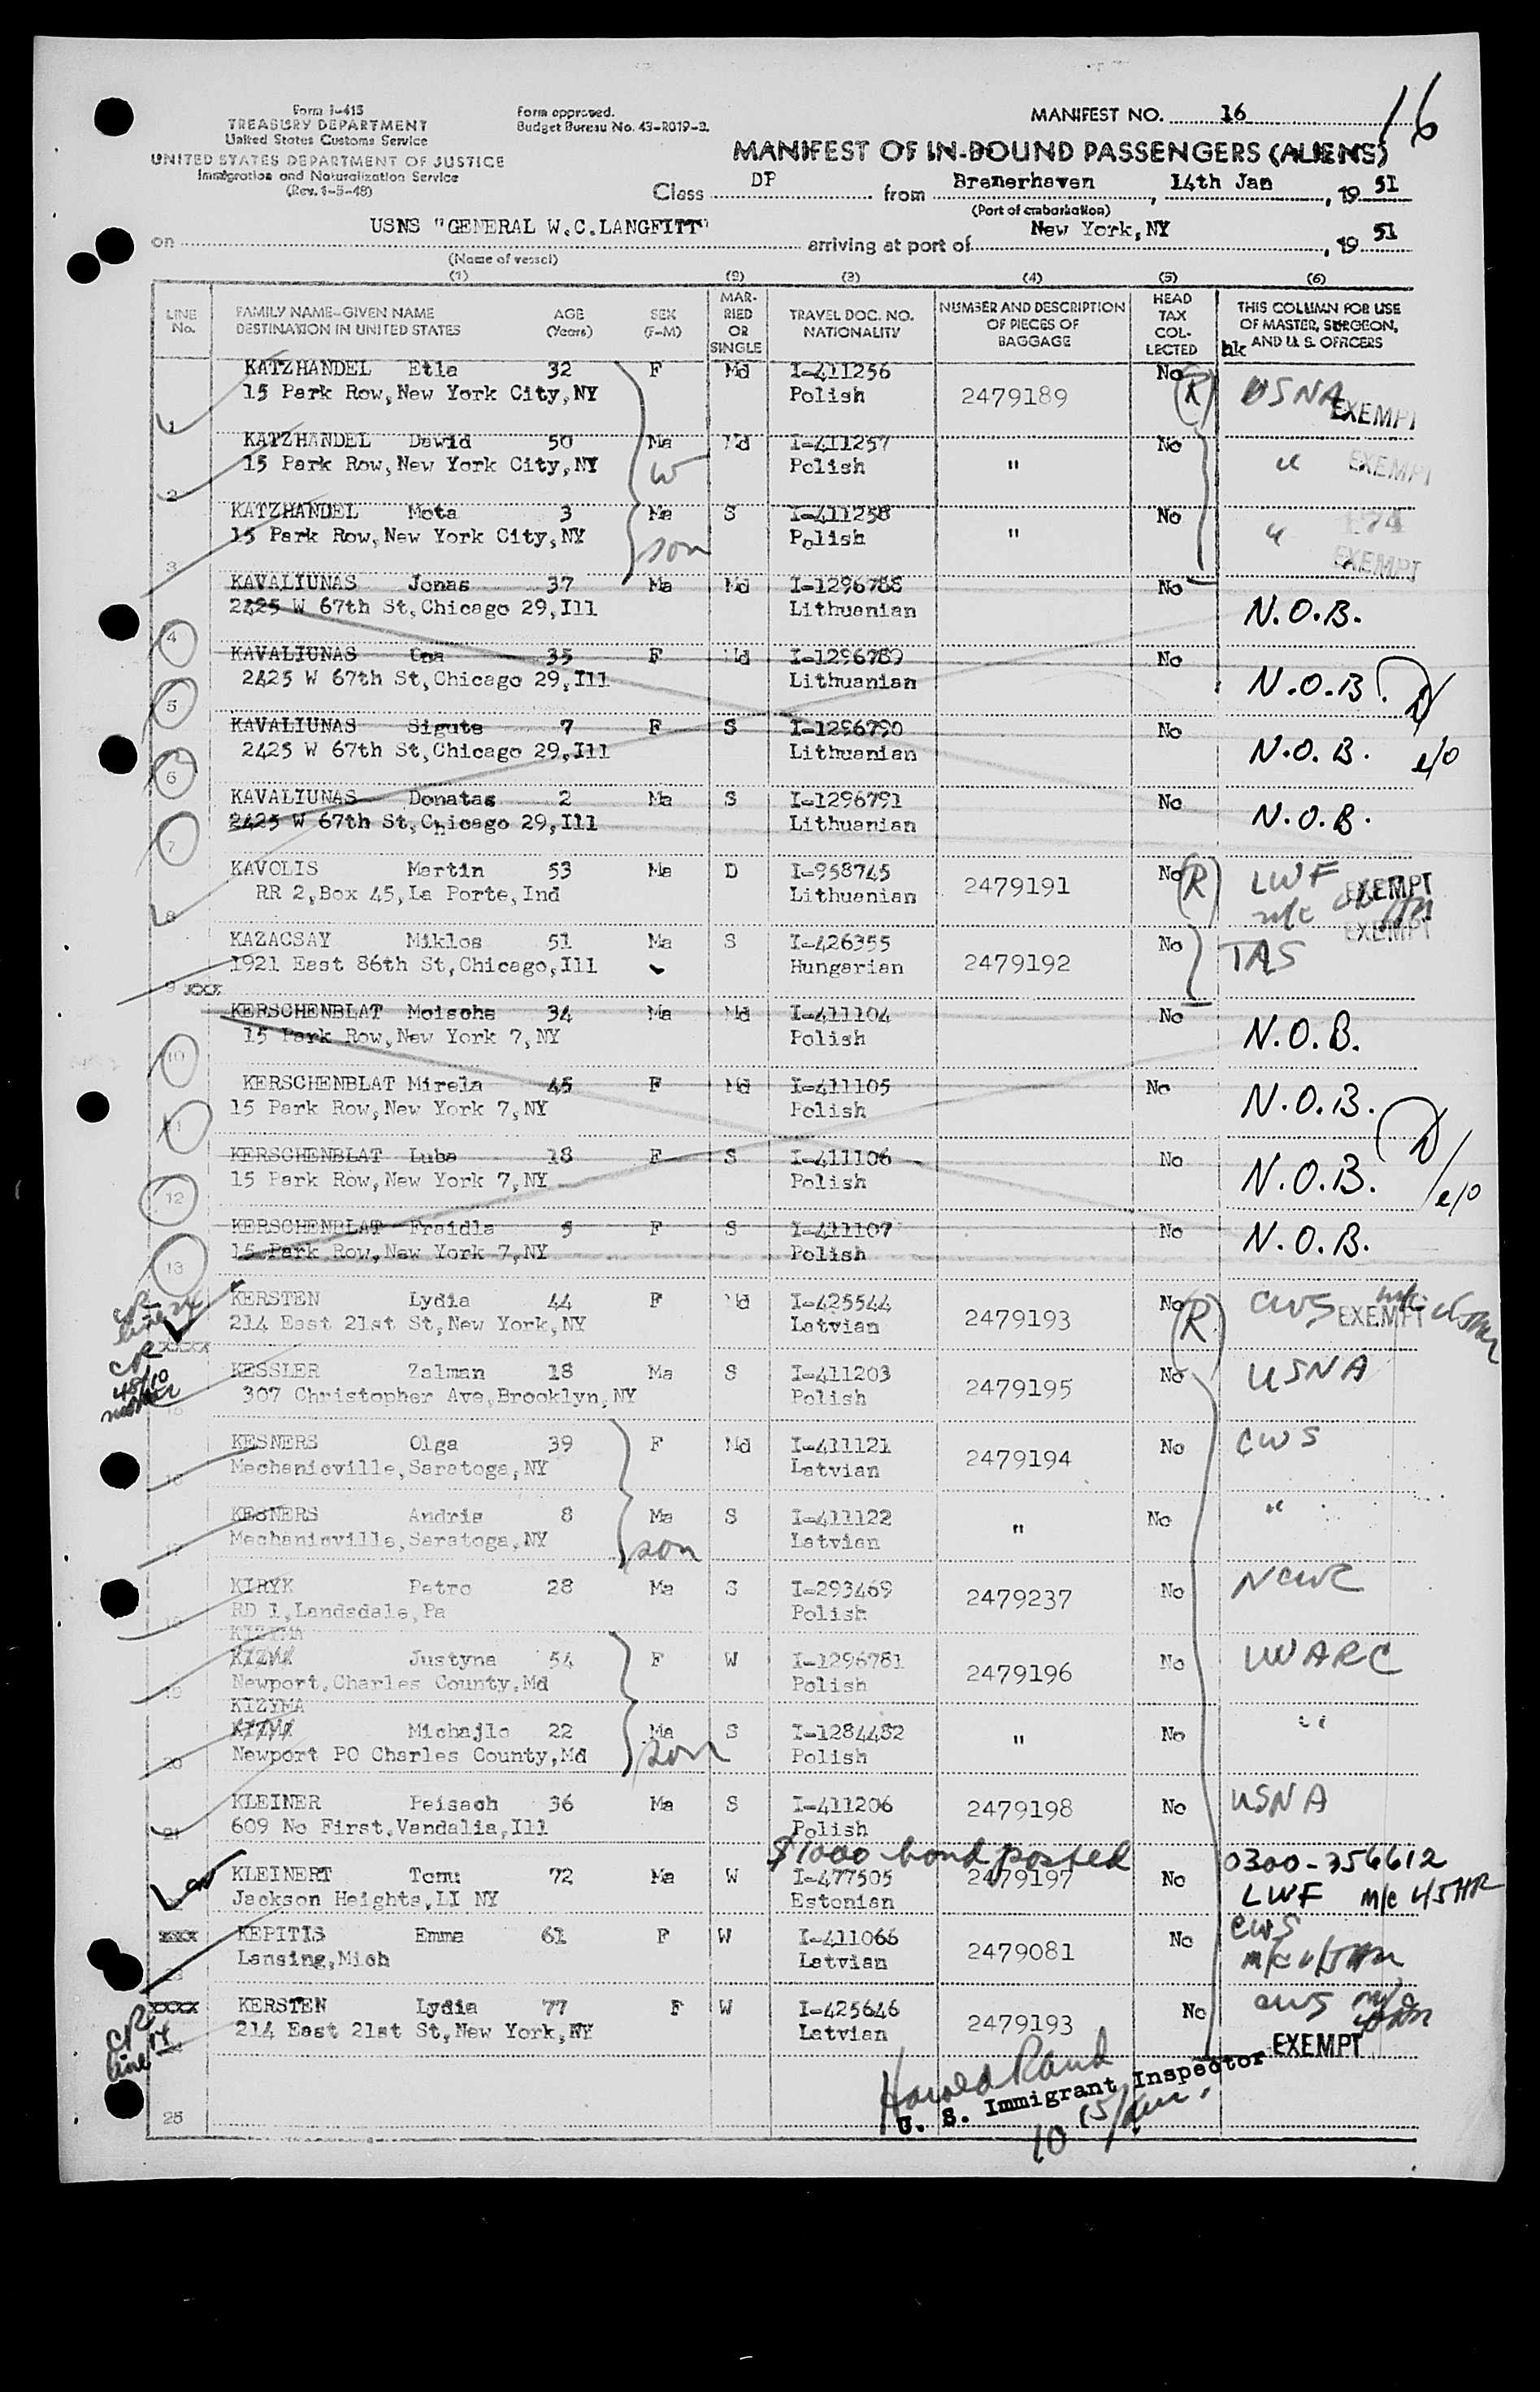 Form I-415
TREASURY DEPARTMENT
United States Customs Service
UNITED STATES DEPARTMENT OF JUSTICE
Immigration and Naturalization Service
(Rev. 1-5-48)
Form approved.
Budget Bureau No. 43-R019-2.
MANIFEST NO. 16
16
MANIFEST OF IN-BOUND PASSENGERS (ALIENS)
Class DP from Bremerhaven, 14th Jan, 1951
(Port of embarkation)
on USNS "GENERAL W.C.LANGFITT" arriving at port of New York,NY, 1951
(Name of vessel)
(1) (2) (3) (4) (5) (6)
LINE No. FAMILY NAME-GIVEN NAME DESTINATION IN UNITED STATES AGE (Years) SEX (F-M) MARRIED OR SINGLE TRAVEL DOC. NO. NATIONALITY NUMBER AND DESCRIPTION OF PIECES OF BAGGAGE HEAD TAX COLLECTED THIS COLUMN FOR USE OF MASTER, SURGEON, AND U. S. OFFICERS
hk
KATZHANDEL Etla 32 F Md I-411256 No (R) USNA EXEMPT
1 15 Park Row,New York City,NY Polish 2479189
KATZHANDEL Dawid 50 Ma Md I-411257 No " EXEMPT
2 15 Park Row,New York City,NY W Polish "
KATZHANDEL Mota 3 Ma S I-411258 No " 174
3 15 Park Row,New York City,NY son Polish " EXEMPT
KAVALIUNAS Jonas 37 Ma Md I-1296788 No
4 2425 W 67th St,Chicago 29,Ill Lithuanian N.O.B.
KAVALIUNAS Ona 35 F Md I-1296789 No
5 2425 W 67th St,Chicago 29,Ill Lithuanian N.O.B.
KAVALIUNAS Sigute 7 F S I-1296790 No
6 2425 W 67th St,Chicago 29,Ill Lithuanian N.O.B. e/o
KAVALIUNAS Donatas 2 Ma S I-1296791 No
7 2425 W 67th St,Chicago 29,Ill Lithuanian N.O.B.
KAVOLIS Martin 53 Ma D I-958745 No (R) LWF EXEMPT
8 RR 2,Box 45,La Porte,Ind Lithuanian 2479191 m/c EXEMPT
KAZACSAY Miklos 51 Ma S I-426355 No TAS
9 xxx 1921 East 86th St,Chicago,Ill Hungarian 2479192
KERSCHENBLAT Moische 34 Ma Md I-411104 No
10 15 Park Row,New York 7,NY Polish N.O.B.
KERSCHENBLAT Mirela 45 F Md I-411105 No
11 15 Park Row,New York 7,NY Polish N.O.B.
KERSCHENBLAT Luba 18 F S I-411106 No
12 15 Park Row,New York 7,NY Polish N.O.B. e/o
KERSCHENBLAT Fraidla 5 F S I-411107 No
13 15 Park Row,New York 7,NY Polish N.O.B.
CR line 24
KERSTEN Lydia 44 F Md I-425544 No (R) CWS m/c EXEMPT
xxxx 214 East 21st St,New York,NY Latvian 2479193
CR
KESSLER Zalman 18 Ma S I-411203 No USNA
15 307 Christopher Ave,Brooklyn,NY Polish 2479195
KESNERS Olga 39 F Md I-411121 No CWS
16 Mechanicville,Saratoga,NY Latvian 2479194
KESNERS Andris 8 Ma S I-411122 No "
17 Mechanicville,Saratoga,NY son Latvian "
KIRYK Petro 28 Ma S I-293469 No NCWC
18 RD 1,Landsdale,Pa Polish 2479237
KIZYMA
Justyna 54 F W I-1296781 No UUARC
19 Newport,Charles County,Md Polish 2479196
KIZYMA
Michajlo 22 Ma S I-1284482 No "
20 Newport PO Charles County,Md son Polish "
KLEINER Peisach 36 Ma S I-411206 No USNA
21 609 No First,Vandalia,Ill Polish 2479198
$1000 bond posted
KLEINERT Tom: 72 Ma W I-477505 2479197 No 0300-356612
Jackson Heights,LI NY Estonian LWF m/c
xxx KEPITIS Emma 61 F W I-411066 No CWS
23 Lansing,Mich Latvian 2479081 m/c
xxxx KERSTEN Lydia 77 F W I-425646 No CWS m/c
214 East 21st St,New York,NY Latvian 2479193 EXEMPT
CR line 14
Harold Rand
U. S. Immigrant Inspector
25